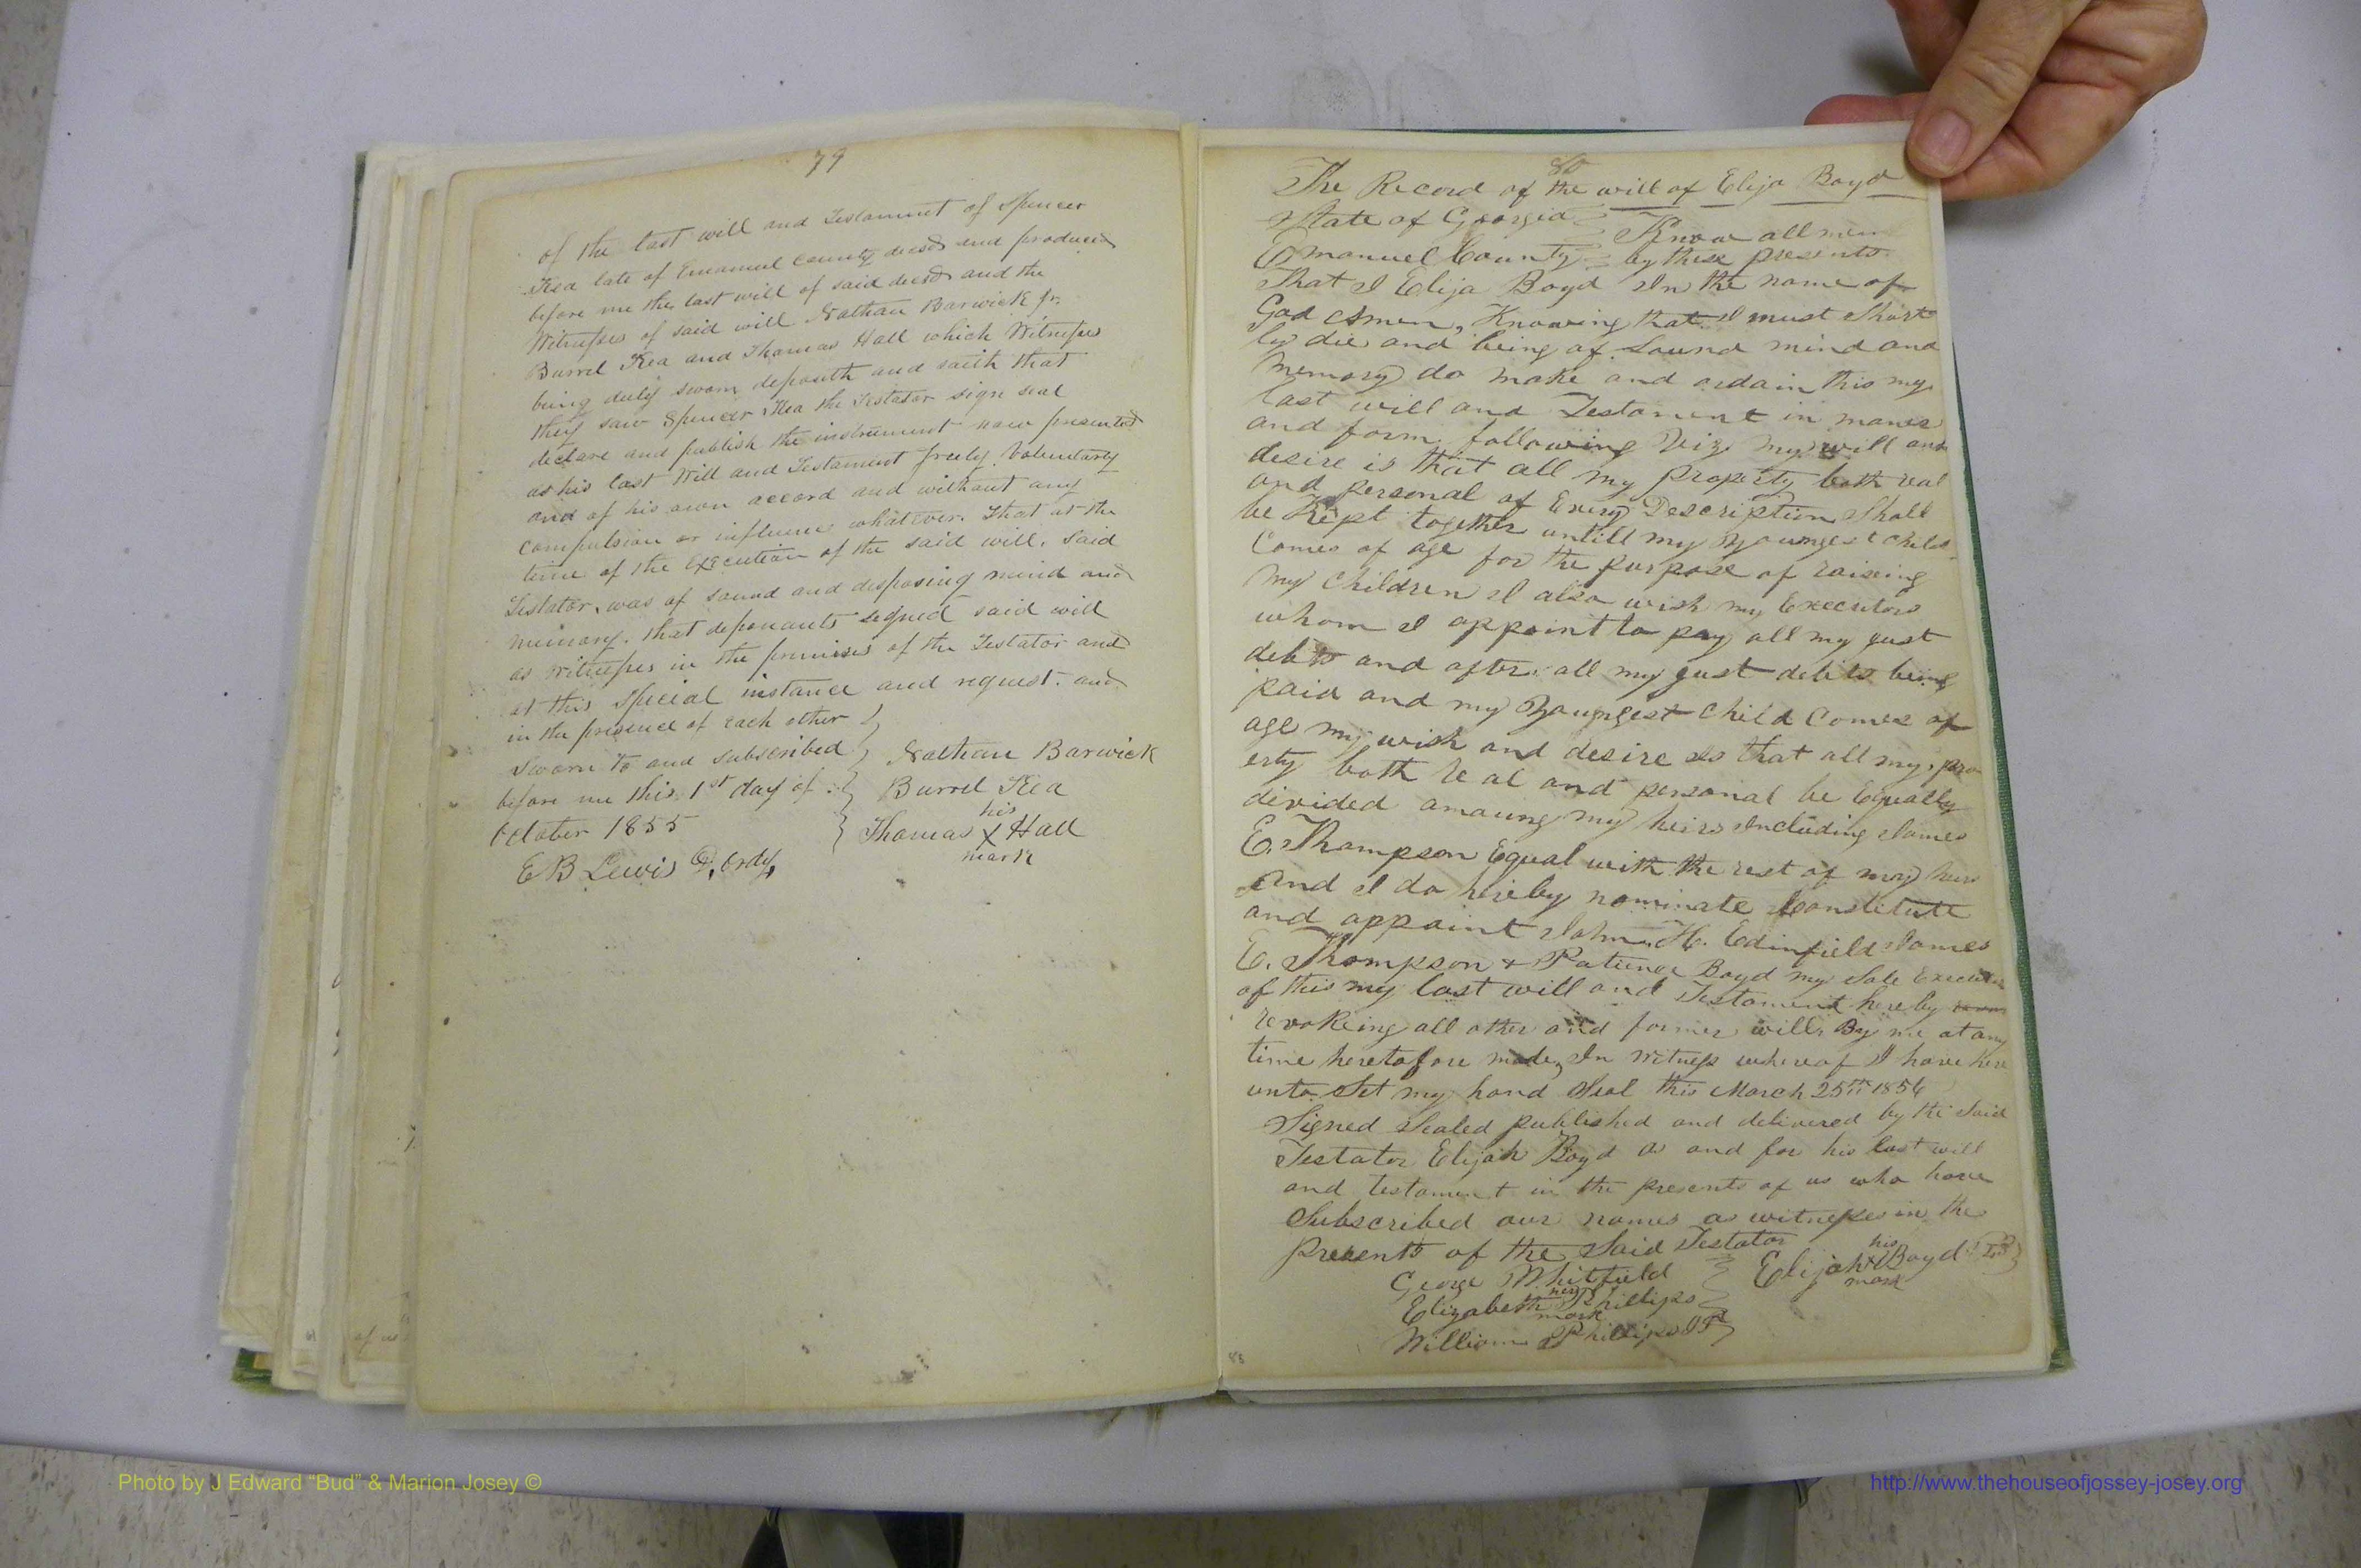 79
of the last will and Testament of Spencer
Kea late of Emanuel County decsd and produced
before me the last will of said decsd and the
Witnesses of said will Nathan Barwick Jr.
Burrel Kea and Thomas Hall which Witnesses
being duly sworn deposeth and saith that
they saw Spencer Kea the Testator sign seal
declare and publish the instrument now presented
as his last Will and Testament freely Voluntarly
and of his own accord and without any
compulsion or influence whatever. That at the
time of the Execution of the said will. Said
Testator, was of sound and disposing mind and
memory. that deponants signed said will
as witnesses in the premises of the Testator and
at this special instance and request. and
in the presence of each other
Sworn to and subscribed
before me this 1st day of
October 1855
E B Lewis D, Ordy,
Nathan Barwick
Burrel Kea
his
Thomas X Hall
mark
80
The Record of the will of Elija Boyd
State of Georgia
Emanuel County
Know all men
by these presents
That I Elija Boyd In the name of
God Amen, Knowing that I must Short
ly die and being of Sound mind and
memory do make and ordain this my
last will and Testament in maner
and form following Viz my will and
desire is that all my property both real
and personal of Every Description Shall
be Kept together untill my Youngest child
Comes of age for the purpose of raising
my Children I also wish my Executors
whom I appoint to pay all my just
debts and after all my just debts being
paid and my Youngest Child Comes of
age my wish and desire Is that all my prop
erty both Real and personal be Equally
divided amoung my heirs Including James
E. Thompson Equal with the rest of my heirs
And I do hereby nominate Constitute
and appoint John H. Edinfield James
E. Thompson & Patience Boyd my Sole Executors
of this my last will and Testament hereby
revokeing all other and former wills By me at any
time heretofore made, In Witness whereof I have here
unto Set my hand Seal this March 25th 1856
Signed Sealed published and delivered by the Said
Testator Elijah Boyd as and for his last will
and testament in the presents of us who have
Subscribed our names as witnesses in the
Presents of the Said Testator
his
Elijah X Boyd LS
mark
George Whitfield
her
Elizabeth Phillips
mark
William Phillips JP
83
Photo by J Edward “Bud” & Marion Josey ©
http://www.thehouseofjossey-josey.org